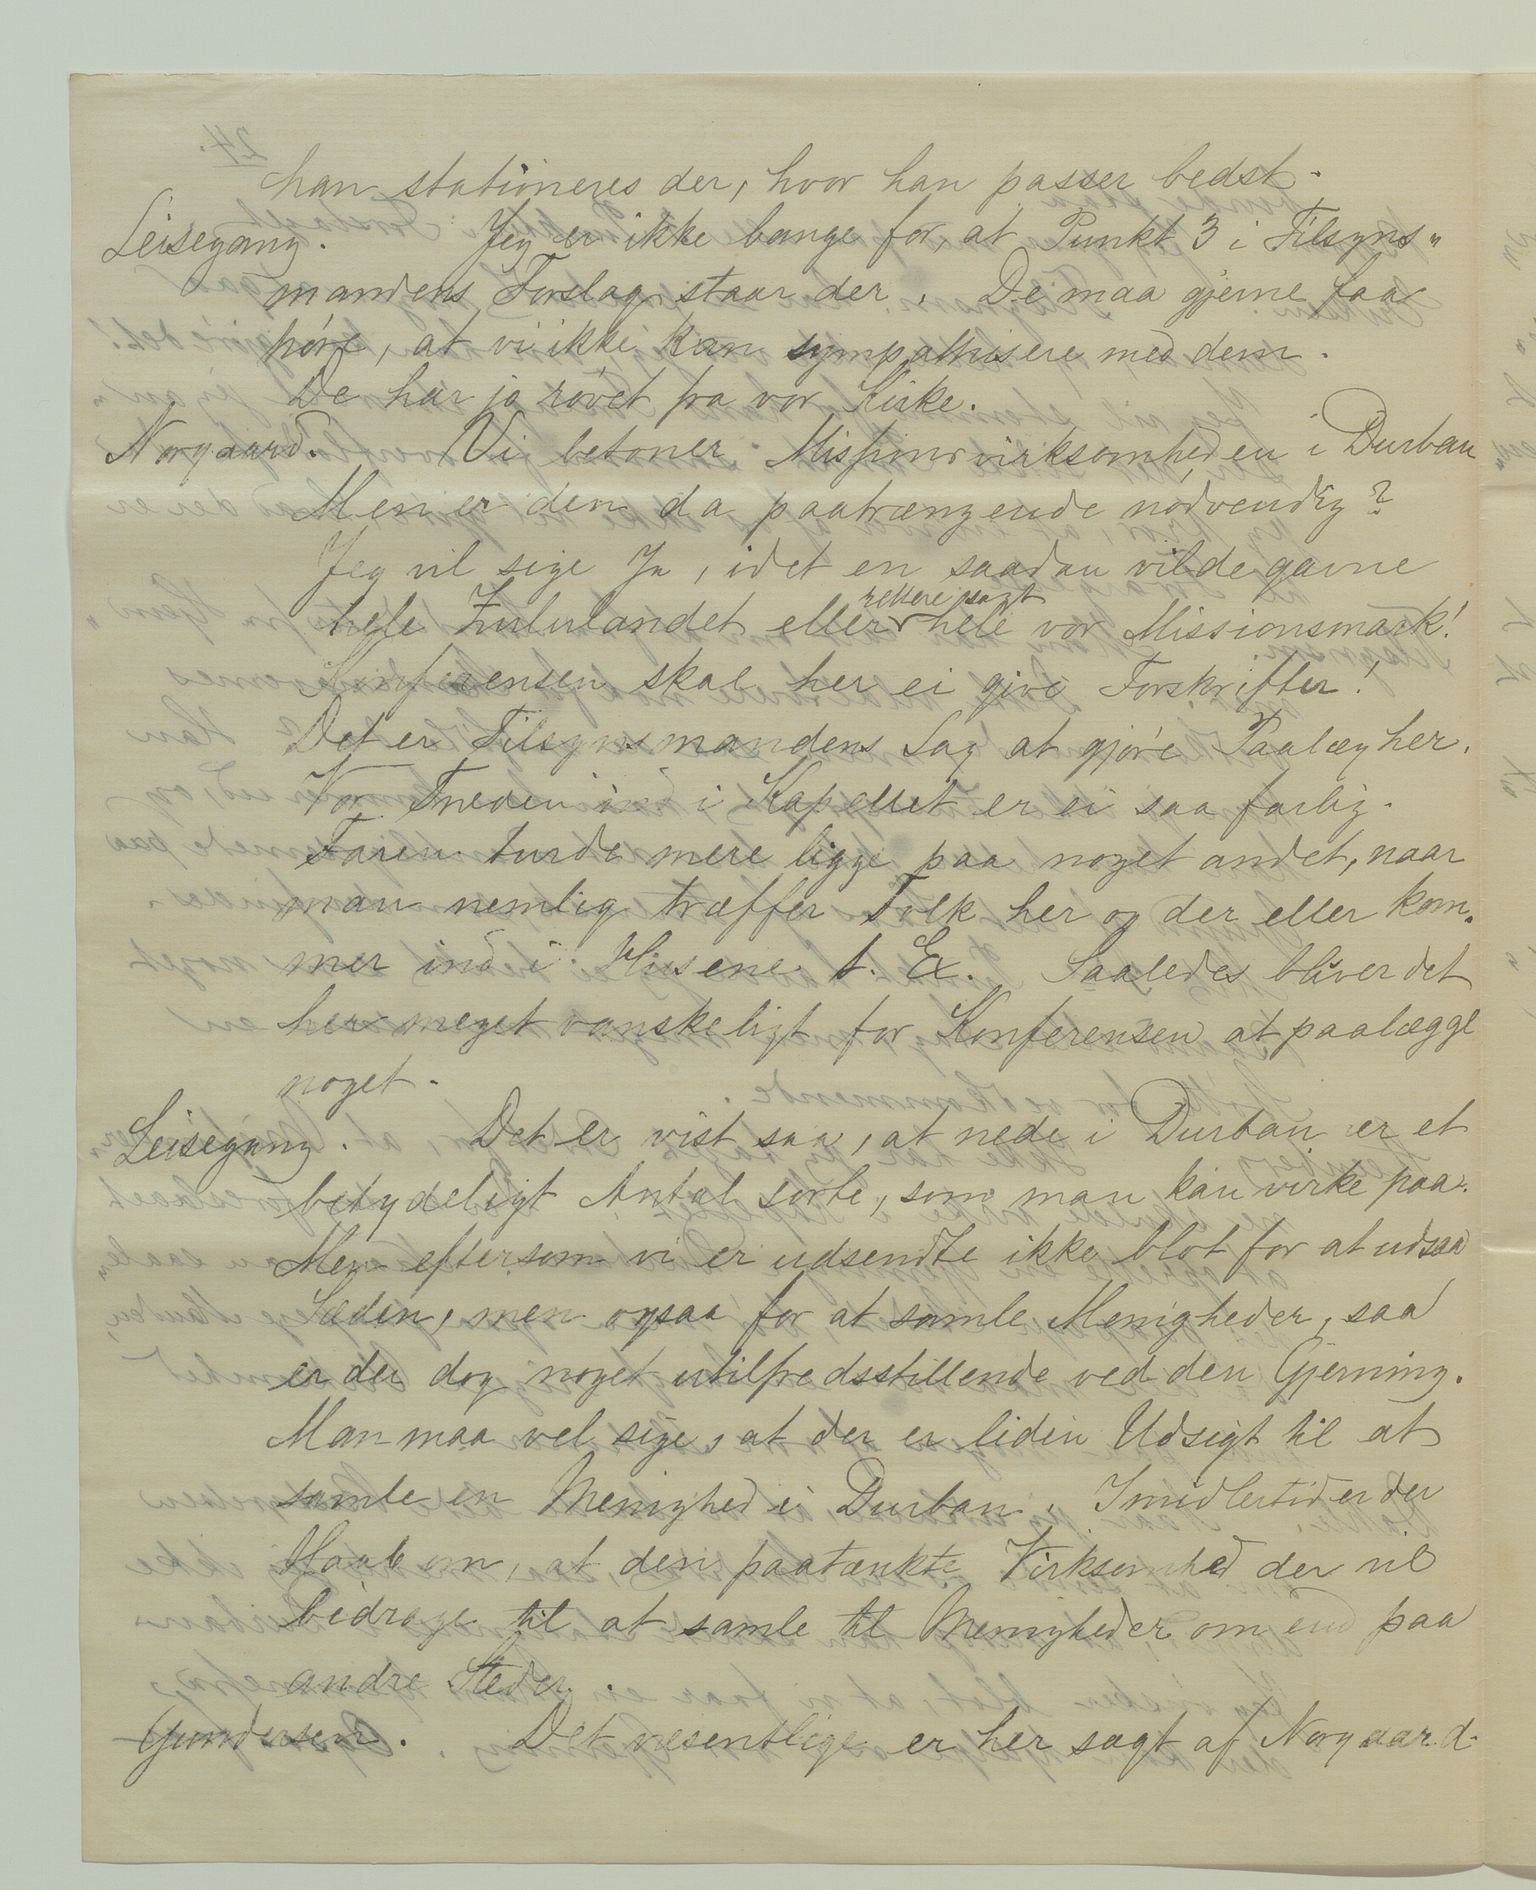 han stationeres der, hvor han passer bedst.
Leisegang. Jeg er ikke bange for, at Punkt 3 i Tilsyns-
mandens Forslag staar der. De maa gjerne faa
høre, at vi ikke kan sympathisere med dem.
De har jo røvet fra vor Kirke.
Norgaard. Vi betoner Missionsvirksomheden i Durban
Men er den da paatrængende nødvendig?
Jeg vil sige Ja, idet en saadan vilde gavne
hele Zululandet eller rettere sagt hele vor Missionsmark!
Konferensen skal her ei give Forskrifter!
Det er Tilsynsmandens Sag at gjøre Paalæg her.
Vor Træden ind i Kapellet er ei saa farlig.
Faren turde mere ligge paa noget andet, naar
man nemlig træffer Folk her og der eller kom-
mer ind i Husene t. Ex. Saaledes bliver det
her meget vanskeligt for Konferensen at paalægge
noget.
Leisegang. Det er vist saa, at nede i Durban er et
betydeligt Antal sorte, som man kan virke paa.
Men eftersom vi er udsendte ikke blot for at udsaa
Sæden, men ogsaa for at samle Menigheder, saa
er der dog noget utilfredsstillende ved den Gjerning.
Man maa vel sige, at der er liden Udsigt til at
samle en Menighed i Durban. Imidlertid er der
Haab om, at den paatænkte Virksomhed der vil
bidrage til at samle til Menigheder om end paa
andre Steder.
Gundersen. Det vesentlige er her sagt af Norgaard.